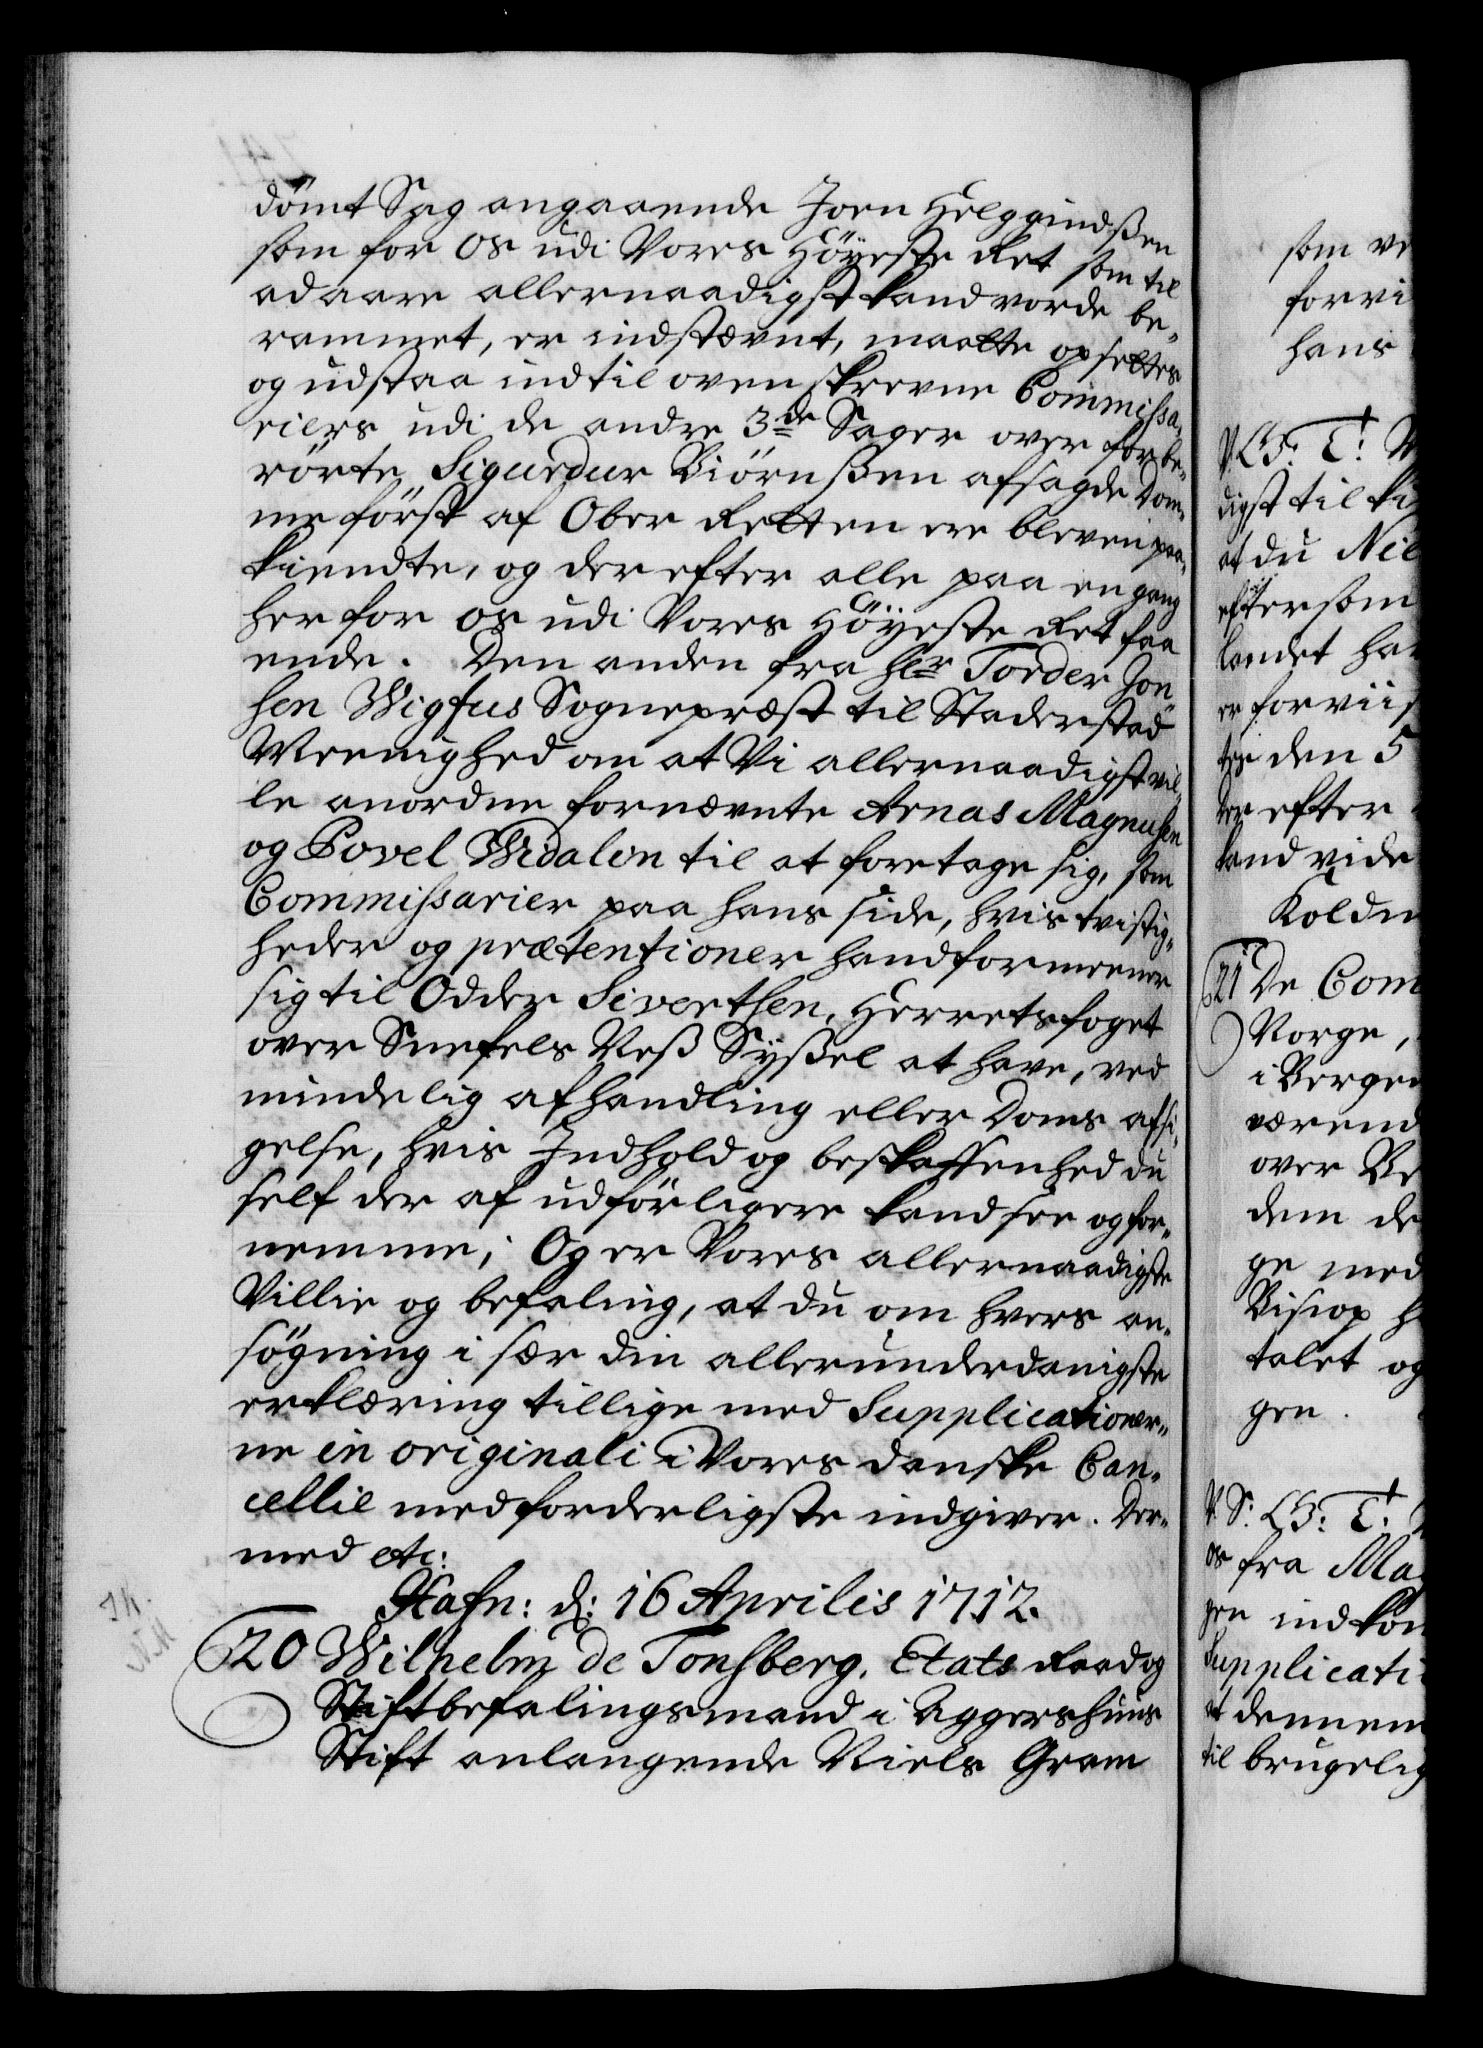 dömt Sag angaaende Joen Helggindßen
som for os udi Vores Höyeste Ret som til
ad aare allernaadigst kand vorde be¬
rammet, er indstævnt, maatte opsettes
og udstaa indtil ovenskrevne Commissa¬
riers udi de andre 3de Sager over forbe¬
rörte Sigurdur Biörnßen afsagde Dom¬
me först af Ober Retten ere bleven paa¬
kiendte, og der efter alle paa en gang
her for os udi Vores Höyeste Ret faa
ende. Den anden fra Hr Torder Jon¬
sen Wigfus Sognepræst til Staderstad
Meenighed om at Vi allernaadigst vil¬
le anordne fornævnte Arnas Magnusen
og Povel Widalin til at foretage sig, som
Commissarier paa hans side, hvis tvistig¬
heder og prætentioner hand formeener
sig til Odder Siverthen, Herretsfoget
over Snefels Neß Syßel at have, ved
mindelig afhandling eller Doms afsi¬
gelse, hvis Indhold og beskaffenhed du
self der af udförligere kand see og for¬
nemme; Og er Vores allernaadigste
Villie og befaling, at du om hvers an¬
søgning i sær din allerunderdanigste
erklæring tillige med Supplicationer¬
ne in originali i Vores danske Can¬
cellie med forderligste indgiver. Der¬
med etc:
Hafn: d: 16 Aprilis 1712.
20 Wilhelm de Tonsberg, Etats Raad og
Stiftbefalingsmand i Aggershuus
Stift anlangende Niels Gram
som ve
forvi
hans
V. G: T:
digst til ki
at du Nie
eftersom
landet ha
er forviis
ter den 5
der efter
kand vide
Koldn
21 De Com
Norge,
i Bergen
værend
over Be
dem de
ge med
Bisiop h
talet og
gen.
V. S: G: T:
os fra Ma
gen indkom
Supplicati
at dennem
til brugelig